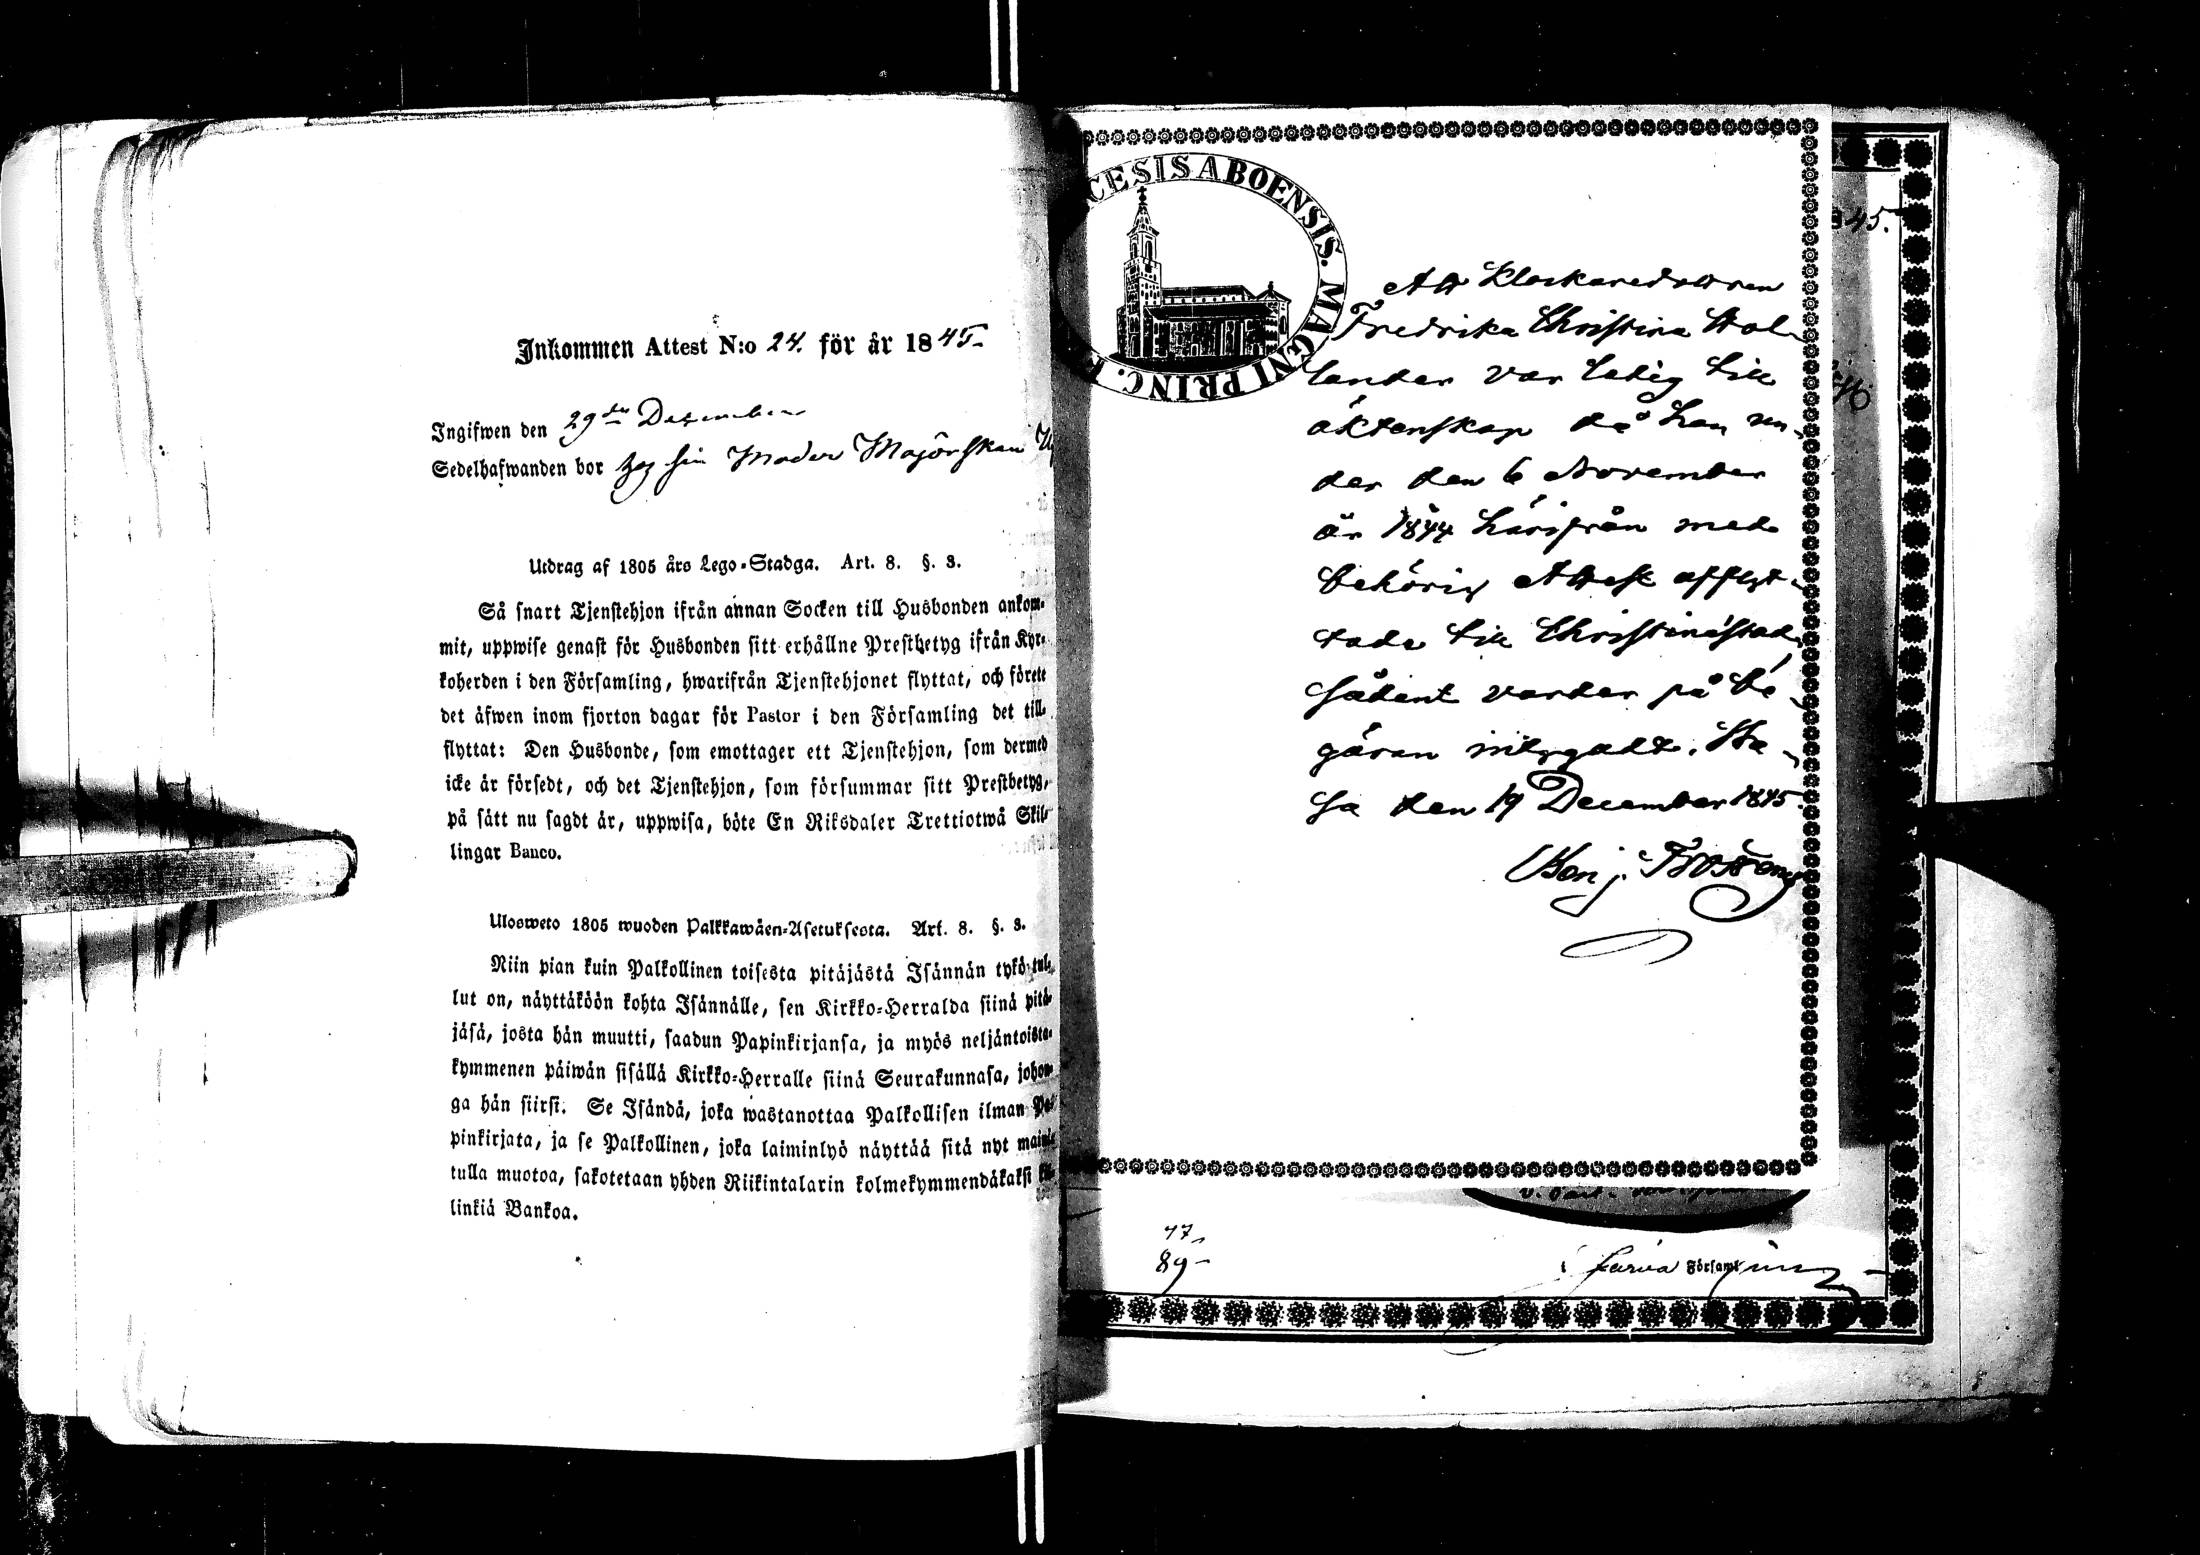 Inkommen Attest N:o 24. för år 1845
Ingifwen den 29de December
Sedelhafwanden bor hos sin Moder Majorskan
Utdrag af 1805 års Lego-Stadga. Art. 8. §. 3.
Så snart Tjenstehjon ifrån annan Socken till Husbonden ankom-
mit, uppwise genast för Husbonden sitt erhållne Prestbetyg ifrån Kyr-
koherden i den Församling, hwarifrån Tjenstehjonet flyttat, och förete
det äfwen inom fjorton dagar för Pastor i den Församling det till-
flyttat: Den Husbonde, som emottager ett Tjenstehjon, som dermed
icke är försedt, och det Tjenstehjon, som försummar sitt Prestbetyg,
på sätt nu sagdt är, uppwisa, böte En Riksdaler Trettiotwå Skil-
lingar Banco.
Ulosweto 1805 wuoden Palkkawäen-Asetuksesta. Art. 8. §. 3.
Niin pian kuin Palkollinen toisesta pitäjästä Isännän tykö tul-
lut on, näyttäköön kohta Isännälle, sen Kirkko-Herralda siinä pitä-
jäsä, josta hän muutti, saadun Papinkirjansa, ja myös neljäntoista-
kymmenen päiwän sisällä Kirkko-Herralle siinä Seurakunnasa, johon-
ga hän siirsi. Se Isändä, joka wastanottaa Palkollisen ilman Pa-
pinkirjata, ja se Palkollinen, joka laiminlyö näyttää sitä nyt mainit-
tulla muotoa, sakotetaan yhden Riikintalarin kolmekymmendäkaksi kil-
linkiä Bankoa.
CESIS ABOENSIS. MAGNI PRINC.
45.
Att Klockaredottren
Fredrika Christina Hol-
lander var ledig till
äktenskap då hon un-
der den 6 November
år 1844 härifrån med
behörig Attest afflyt-
tade till Christinestad,
sådant varder på be-
gäran intygadt. Wa-
sa den 19 December 1845.
Benj. Frosterus
47
89
i Församl